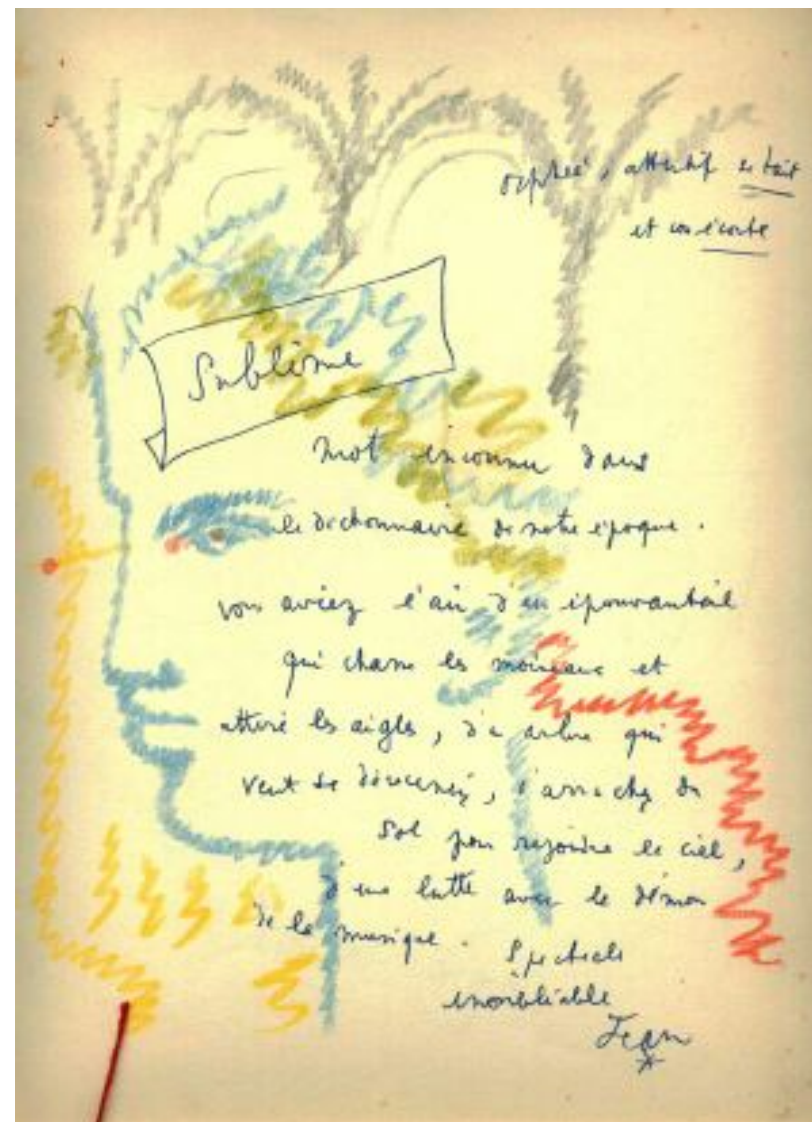 Orphée, attentif se tait
et vous écoute
Sublime
mot inconnu dans
le dictionnaire de notre époque.
vous aviez l'air d'un épouvantail
qui chasse les moineaux et
attire les aigles, d'un arbre qui
veut se déraciner, s'arracher du
sol pour rejoindre le ciel,
d'une lutte avec le démon
de la musique. Spectacle
inoubliable
Jean